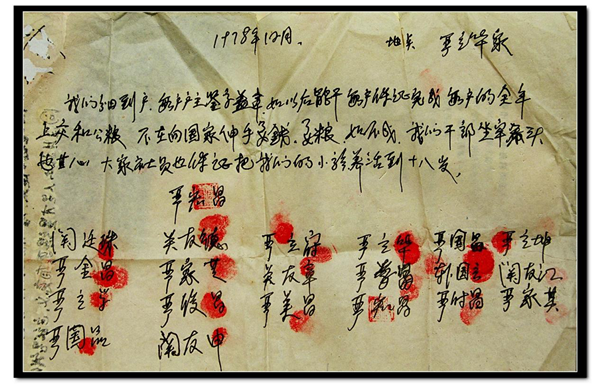 1978年12月. 地点 严立华家
我们分田到户，每户户主签字盖章，如以后能干每户保证完成每户的全年
上交和公粮 不在向国家伸手要钱要粮。如不成，我们干部坐牢杀头
也甘心 大家社员也保证把我们的小孩养活到十八岁。
严宏昌
关廷珠 关友德 严立符 严立华 严国昌 严立坤
严金昌 严家芝 关友章 严学昌 韩国云 关友江
严立学 严俊昌 严美昌 严宏昌 严付昌 严家其
严国品 关友申